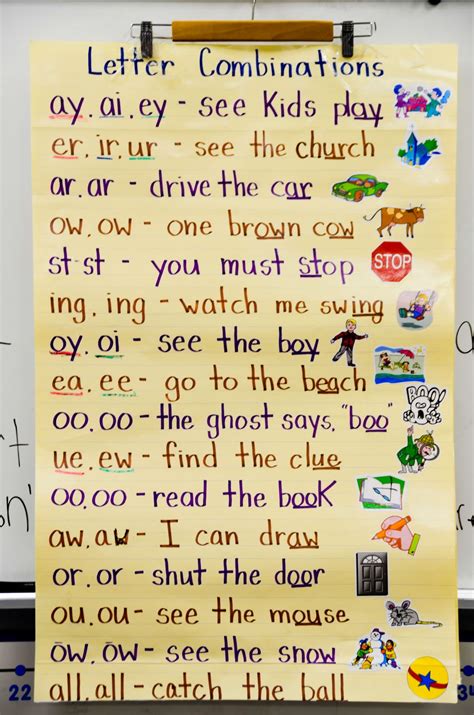 Letter Combinations
ay, ai, ey - see Kids play
er, ir, ur - see the church
ar, ar - drive the car
ow, ow - one brown cow
st-st - you must stop
STOP
ing, ing - watch me swing
oy, oi - see the boy
ea, ee - go to the beach
oo, oo - the ghost says, "boo"
BOO!
ue, ew - find the clue
oo, oo - read the book
aw, aw - I can draw
or, or - shut the door
ou, ou - see the mouse
ōw, ōw - see the snow
all, all - catch the ball
22